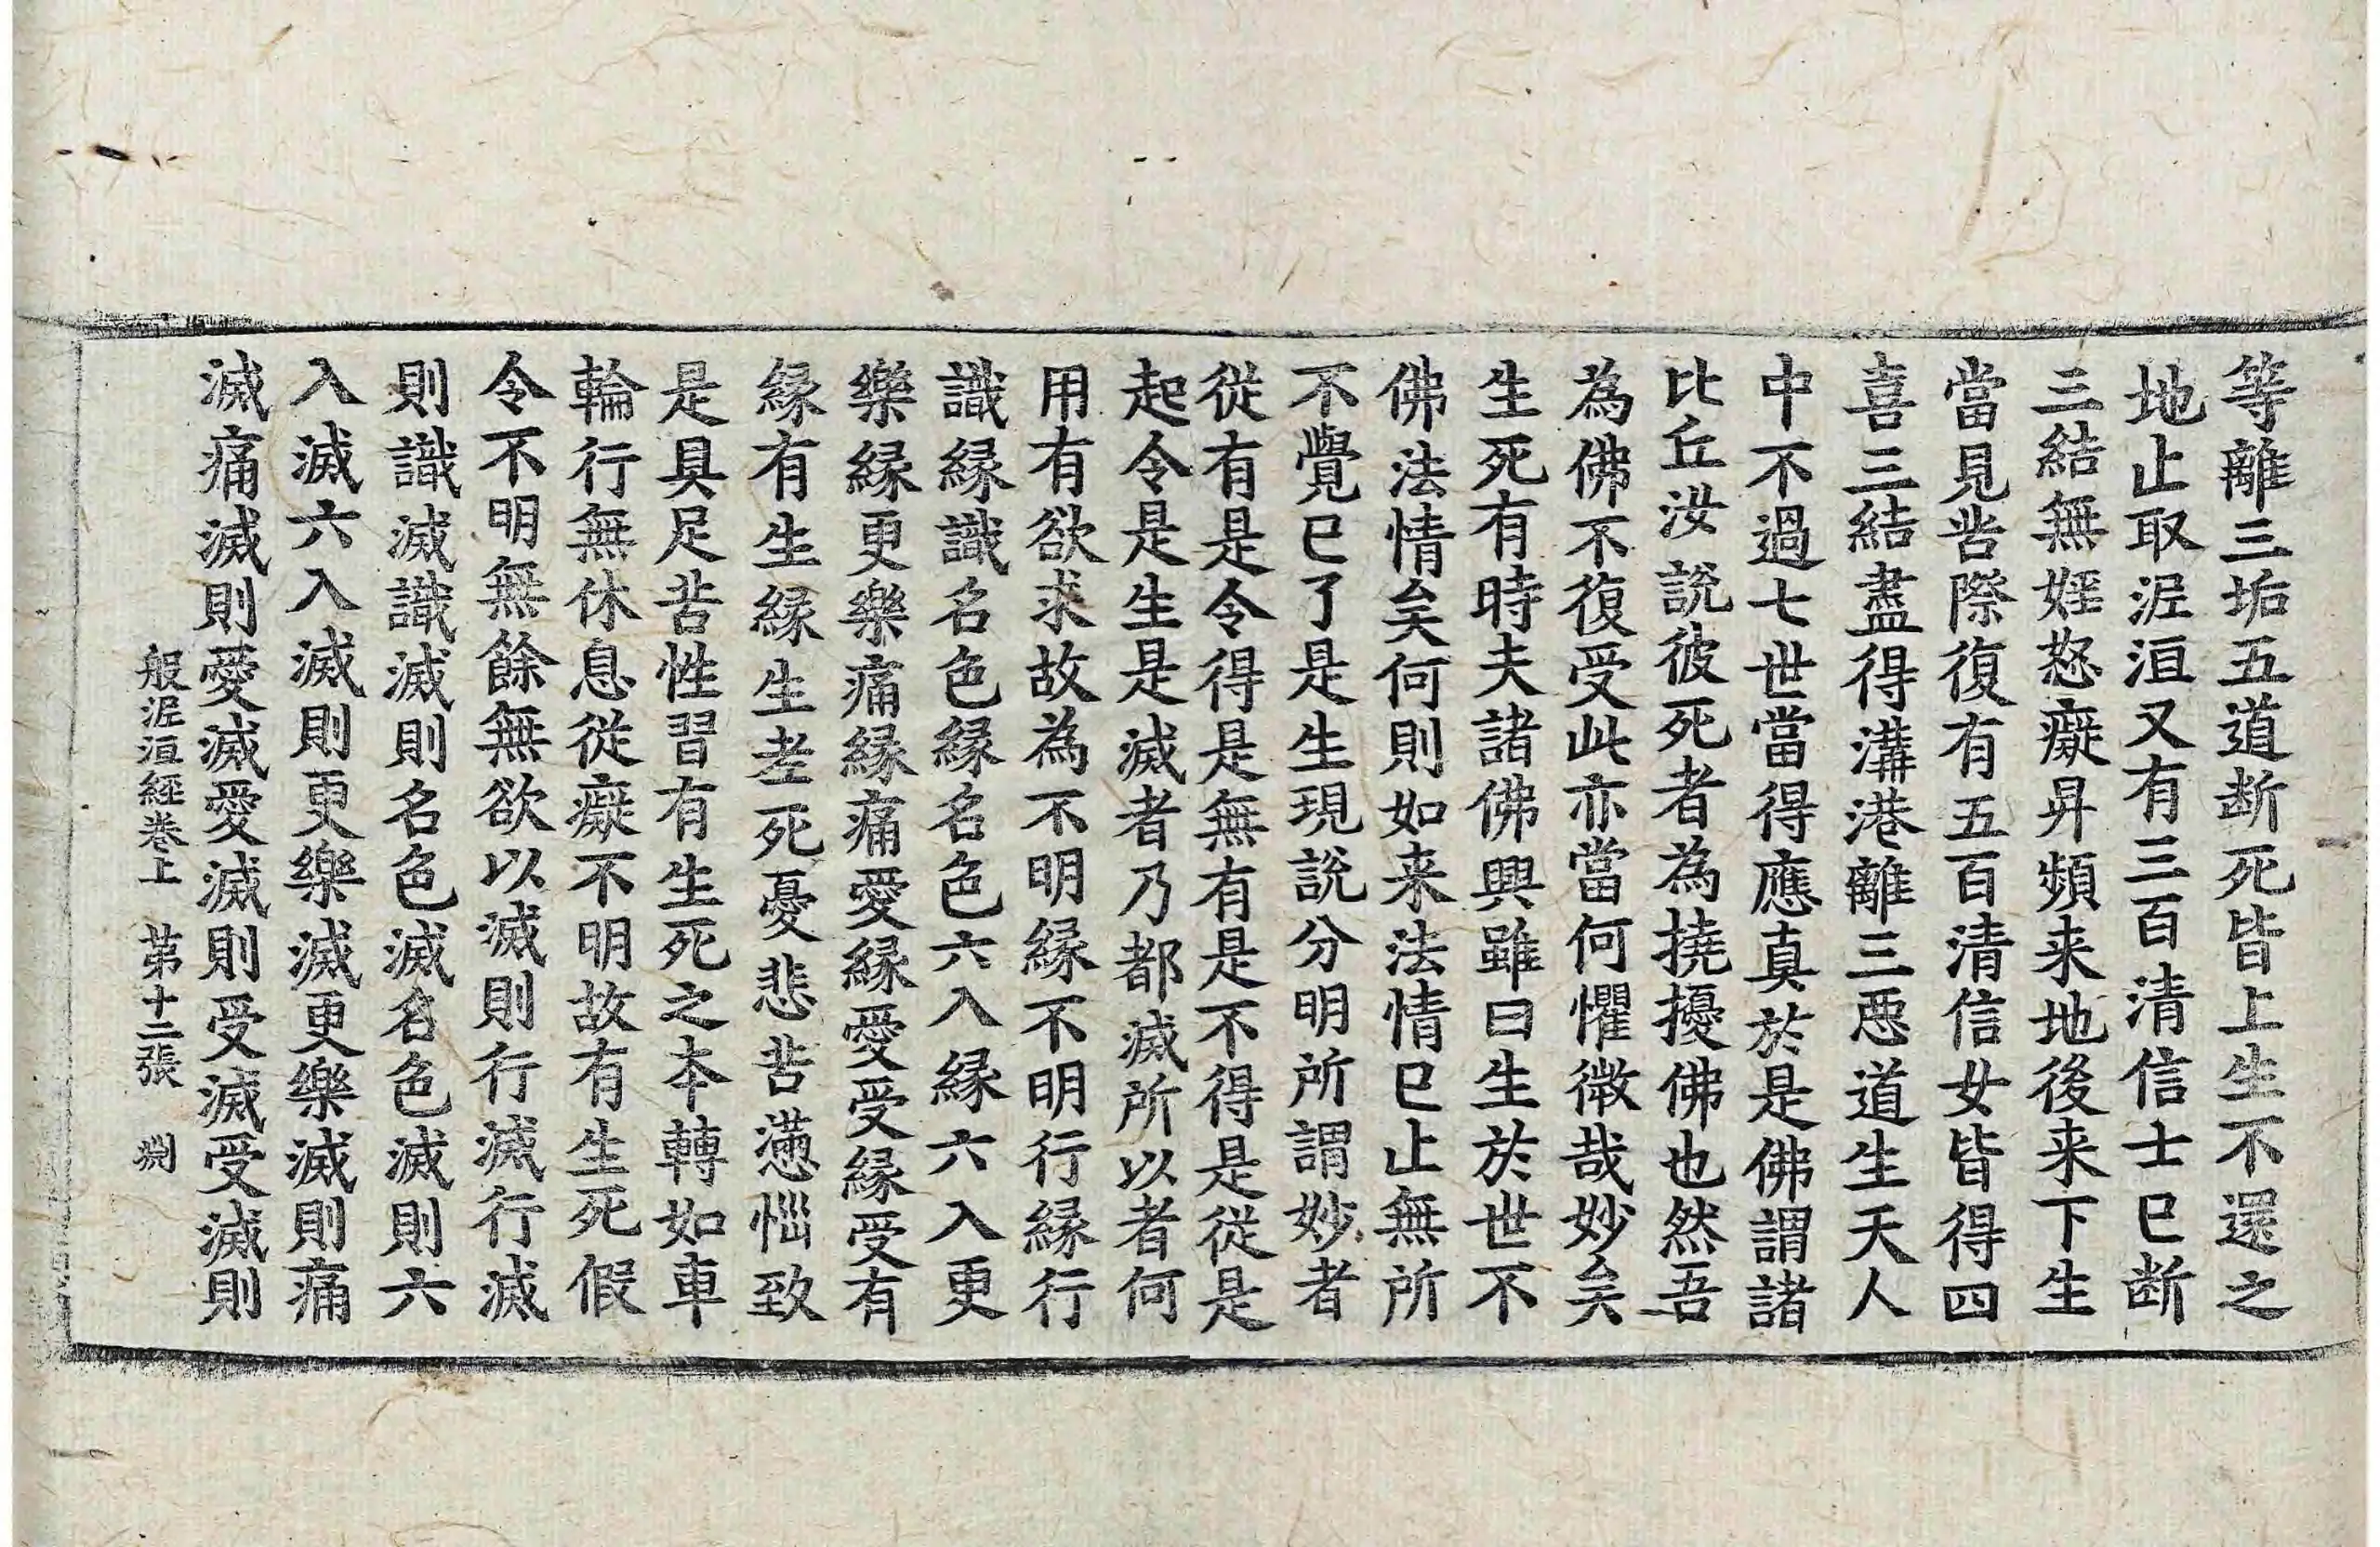 等離三垢五道断死皆上生不還之
地止取泥洹又有三百清信士已断
三結無婬怒癡昇頻来地後来下生
當見苦際復有五百清信女皆得四
喜三結盡得溝港離三悪道生天人
中不過七世當得應真於是佛謂諸
比丘汝說彼死者為撓擾佛也然吾
為佛不復受此亦當何懼微哉妙矣
生死有時夫諸佛興雖曰生於世不
佛法情矣何則如来法情已止無所
不覺已了是生現說分明所謂妙者
従有是令得是無有是不得是従是
起令是生是滅者乃都滅所以者何
用有欲求故為不明縁不明行縁行
識縁識名色縁名色六入縁六入更
樂縁更樂痛縁痛愛縁愛受縁受有
縁有生縁生老死憂悲苦懣惱致
是具足苦性習有生死之本轉如車
輪行無休息従癡不明故有生死假
令不明無餘無欲以滅則行滅行滅
則識滅識滅則名色滅名色滅則六
入滅六入滅則更樂滅更樂滅則痛
滅痛滅則愛滅愛滅則受滅受滅則
般泥洹經卷上　第十二張